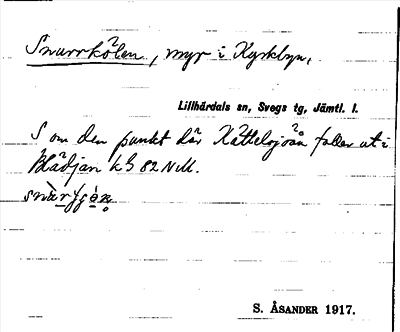 Snurrkölen, myr i Kyrkbyn.
Lillhärdals sn, Svegs tg, Jämtl. l.
S om den punkt där Kättelsjöån faller ut i
Blädjan k § 82 N M.
S. ÅSANDER 1917.